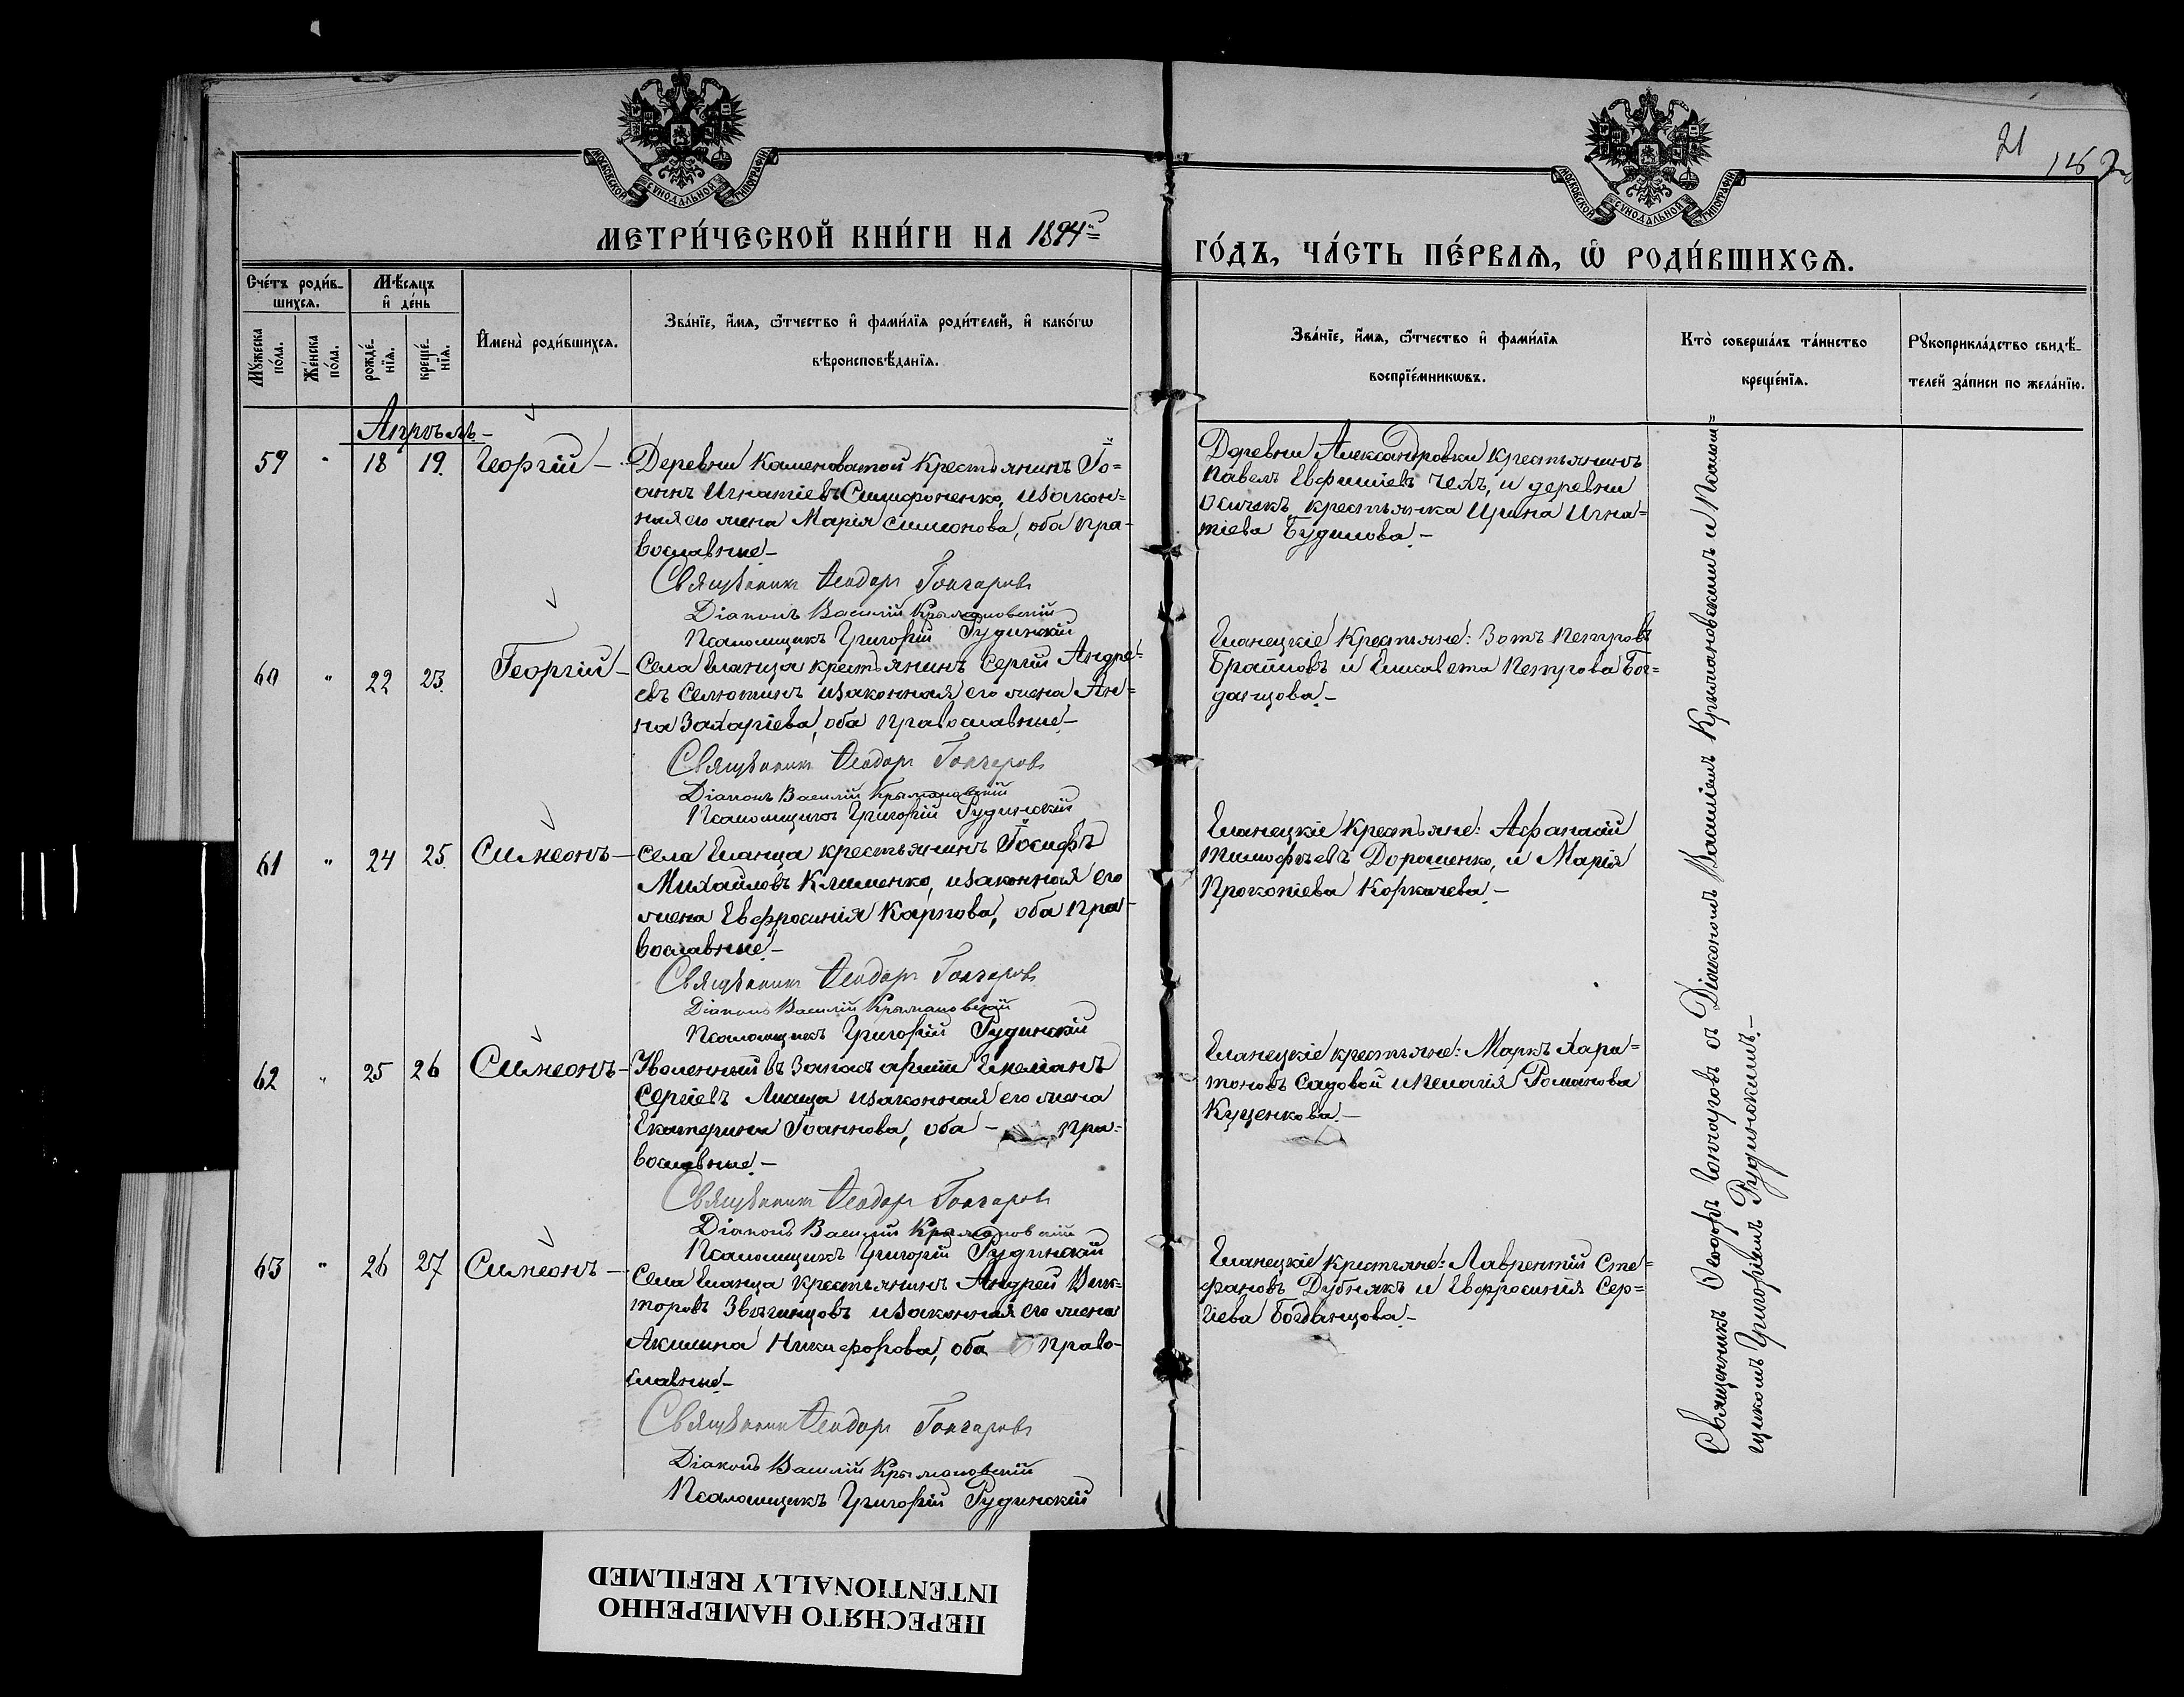 21
МОСКОВСКОЙ СУНОДАЛЬНОЙ ТИПОГРАФІИ
МОСКОВСКОЙ СУНОДАЛЬНОЙ ТИПОГРАФІИ
МЕТРИ́ЧЕСКОЙ КНИ́ГИ НА 1894
ГО́ДЪ, ЧА́СТЬ ПЕ́РВАѦ, Ѡ҆ РОДИ́ВШИХСѦ.
Сче́тъ роди́в-
шихсѧ.
Мѣ́сяцъ
и҆ де́нь
Мꙋ́жеска
по́ла.
Же́нска
по́ла.
рожде́-
нїѧ.
креще́-
нїѧ.
И҆мена̀ роди́вшихсѧ.
Зва́нїе, и҆́мѧ, ѻ҆́тчество и҆ фами́лїѧ роди́телей, и҆ како́гѡ
вѣроисповѣ́данїѧ.
Зва́нїе, и҆́мѧ, ѻ҆́тчество и҆ фами́лїѧ
воспрїе́мникѡвъ.
Кто̀ соверша́лъ та́инство
креще́нїѧ.
Рꙋкоприкла́дство свидѣ́-
телей за́писи по жела́нїю.
Апрѣль.
59 " 18 19. Георгій —
Деревни Каменоватой крестьянинъ Іо=
аннъ Игнатіевъ Симифоненко, и законъ=
ная его жена Марія Симеонова, оба пра-
вославные.—
Священникъ Ѳеодоръ Гончаровъ
Діаконъ Василій Крыжановскій
Псаломщикъ Григорій Рудинскій
Деревни Александровки крестьянинъ
Павелъ Евфиміевъ Чехъ, и деревни
Осичекъ крестьянка Ирина Игна=
тіева Будилова.—
60 " 22 23. Георгій —
Села Еланца крестьянинъ Сергій Андре=
евъ Селютинъ и законная его жена Ан=
на Захаріева, оба православные.—
Священникъ Ѳеодоръ Гончаровъ
Діаконъ Василій Крыжановскій
Псаломщикъ Григорій Рудинскій
Еланецкіе крестьяне: Зотъ Петровъ
Браиловъ и Елисавета Петрова Бог=
данцова.—
61 " 24 25 Симеонъ —
Села Еланца крестьянинъ Іосифъ
Михаиловъ Клименко, и законная его
жена Евфросинія Карпова, оба пра-
вославные.—
Священникъ Ѳеодоръ Гончаровъ
Діаконъ Василій Крыжановскій
Псаломщикъ Григорій Рудинскій
Еланецкіе крестьяне: Афанасій
Тимофѣевъ Дорошенко, и Марія
Прокопіева Коркачева.—
62 " 25 26 Симеонъ —
Уволенный въ запасъ арміи Емеліанъ
Сергіевъ Лисица и законная его жена
Екатерина Іоаннова, оба — пра-
вославные.—
Священникъ Ѳеодоръ Гончаровъ
Діаконъ Василій Крыжановскій
Псаломщикъ Григорій Рудинскій
Еланецкіе крестьяне: Маркъ Хари=
тоновъ Садовой и Пелагія Романова
Куценкова.—
63 " 26 27 Симеонъ —
Села Еланца крестьянинъ Андрей Вик=
торовъ Звягинцовъ и законная его жена
Акилина Никифорова, оба право-
славные.—
Священникъ Ѳеодоръ Гончаровъ
Діаконъ Василій Крыжановскій
Псаломщикъ Григорій Рудинскій
Еланецкіе крестьяне: Лаврентій Сте=
фановъ Дубнякъ и Евфросинія Сер=
гіева Богданцова.—
Священникъ Ѳеодоръ Гончаровъ съ Діакономъ Василіемъ Крыжановскимъ и Псалом=
щикомъ Григоріемъ Рудинскимъ.—
ПЕРЕСНЯТО НАМЕРЕННО
INTENTIONALLY REFILMED